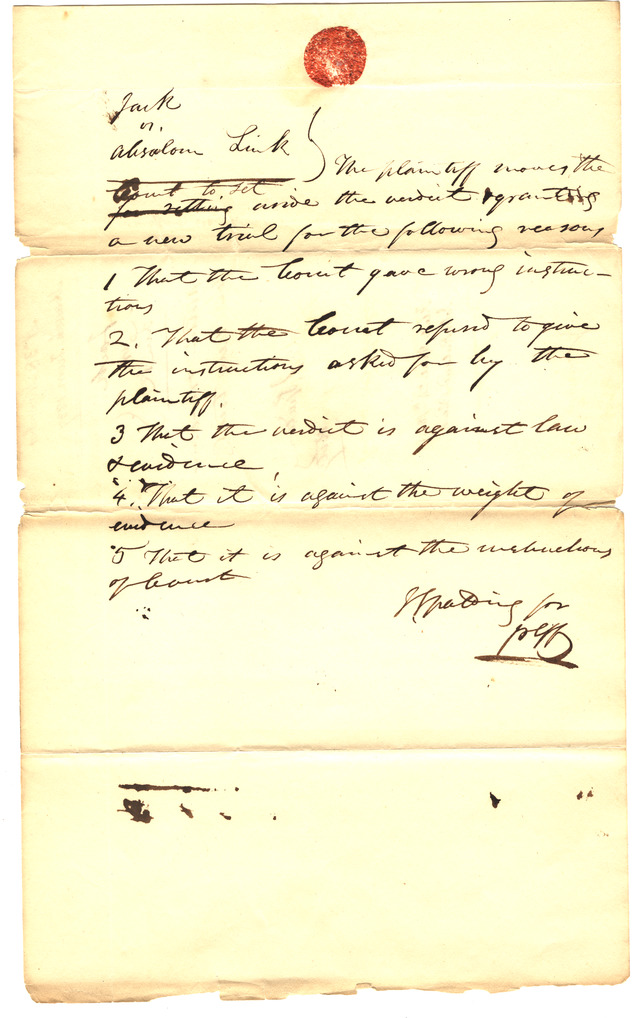 Jack
vs.
Absalom Link } The plaintiff moves the
Court to set
for setting aside the verdict & granting
a new trial for the following reasons
1 That the Court gave wrong instruc-
tions
2. That the Court refused to give
the instructions asked for by the
plaintiff.
3 That the verdict is against law
& evidence
4. That it is against the weight of
evidence
5 That it is against the instructions
of Court
Spalding for
plff